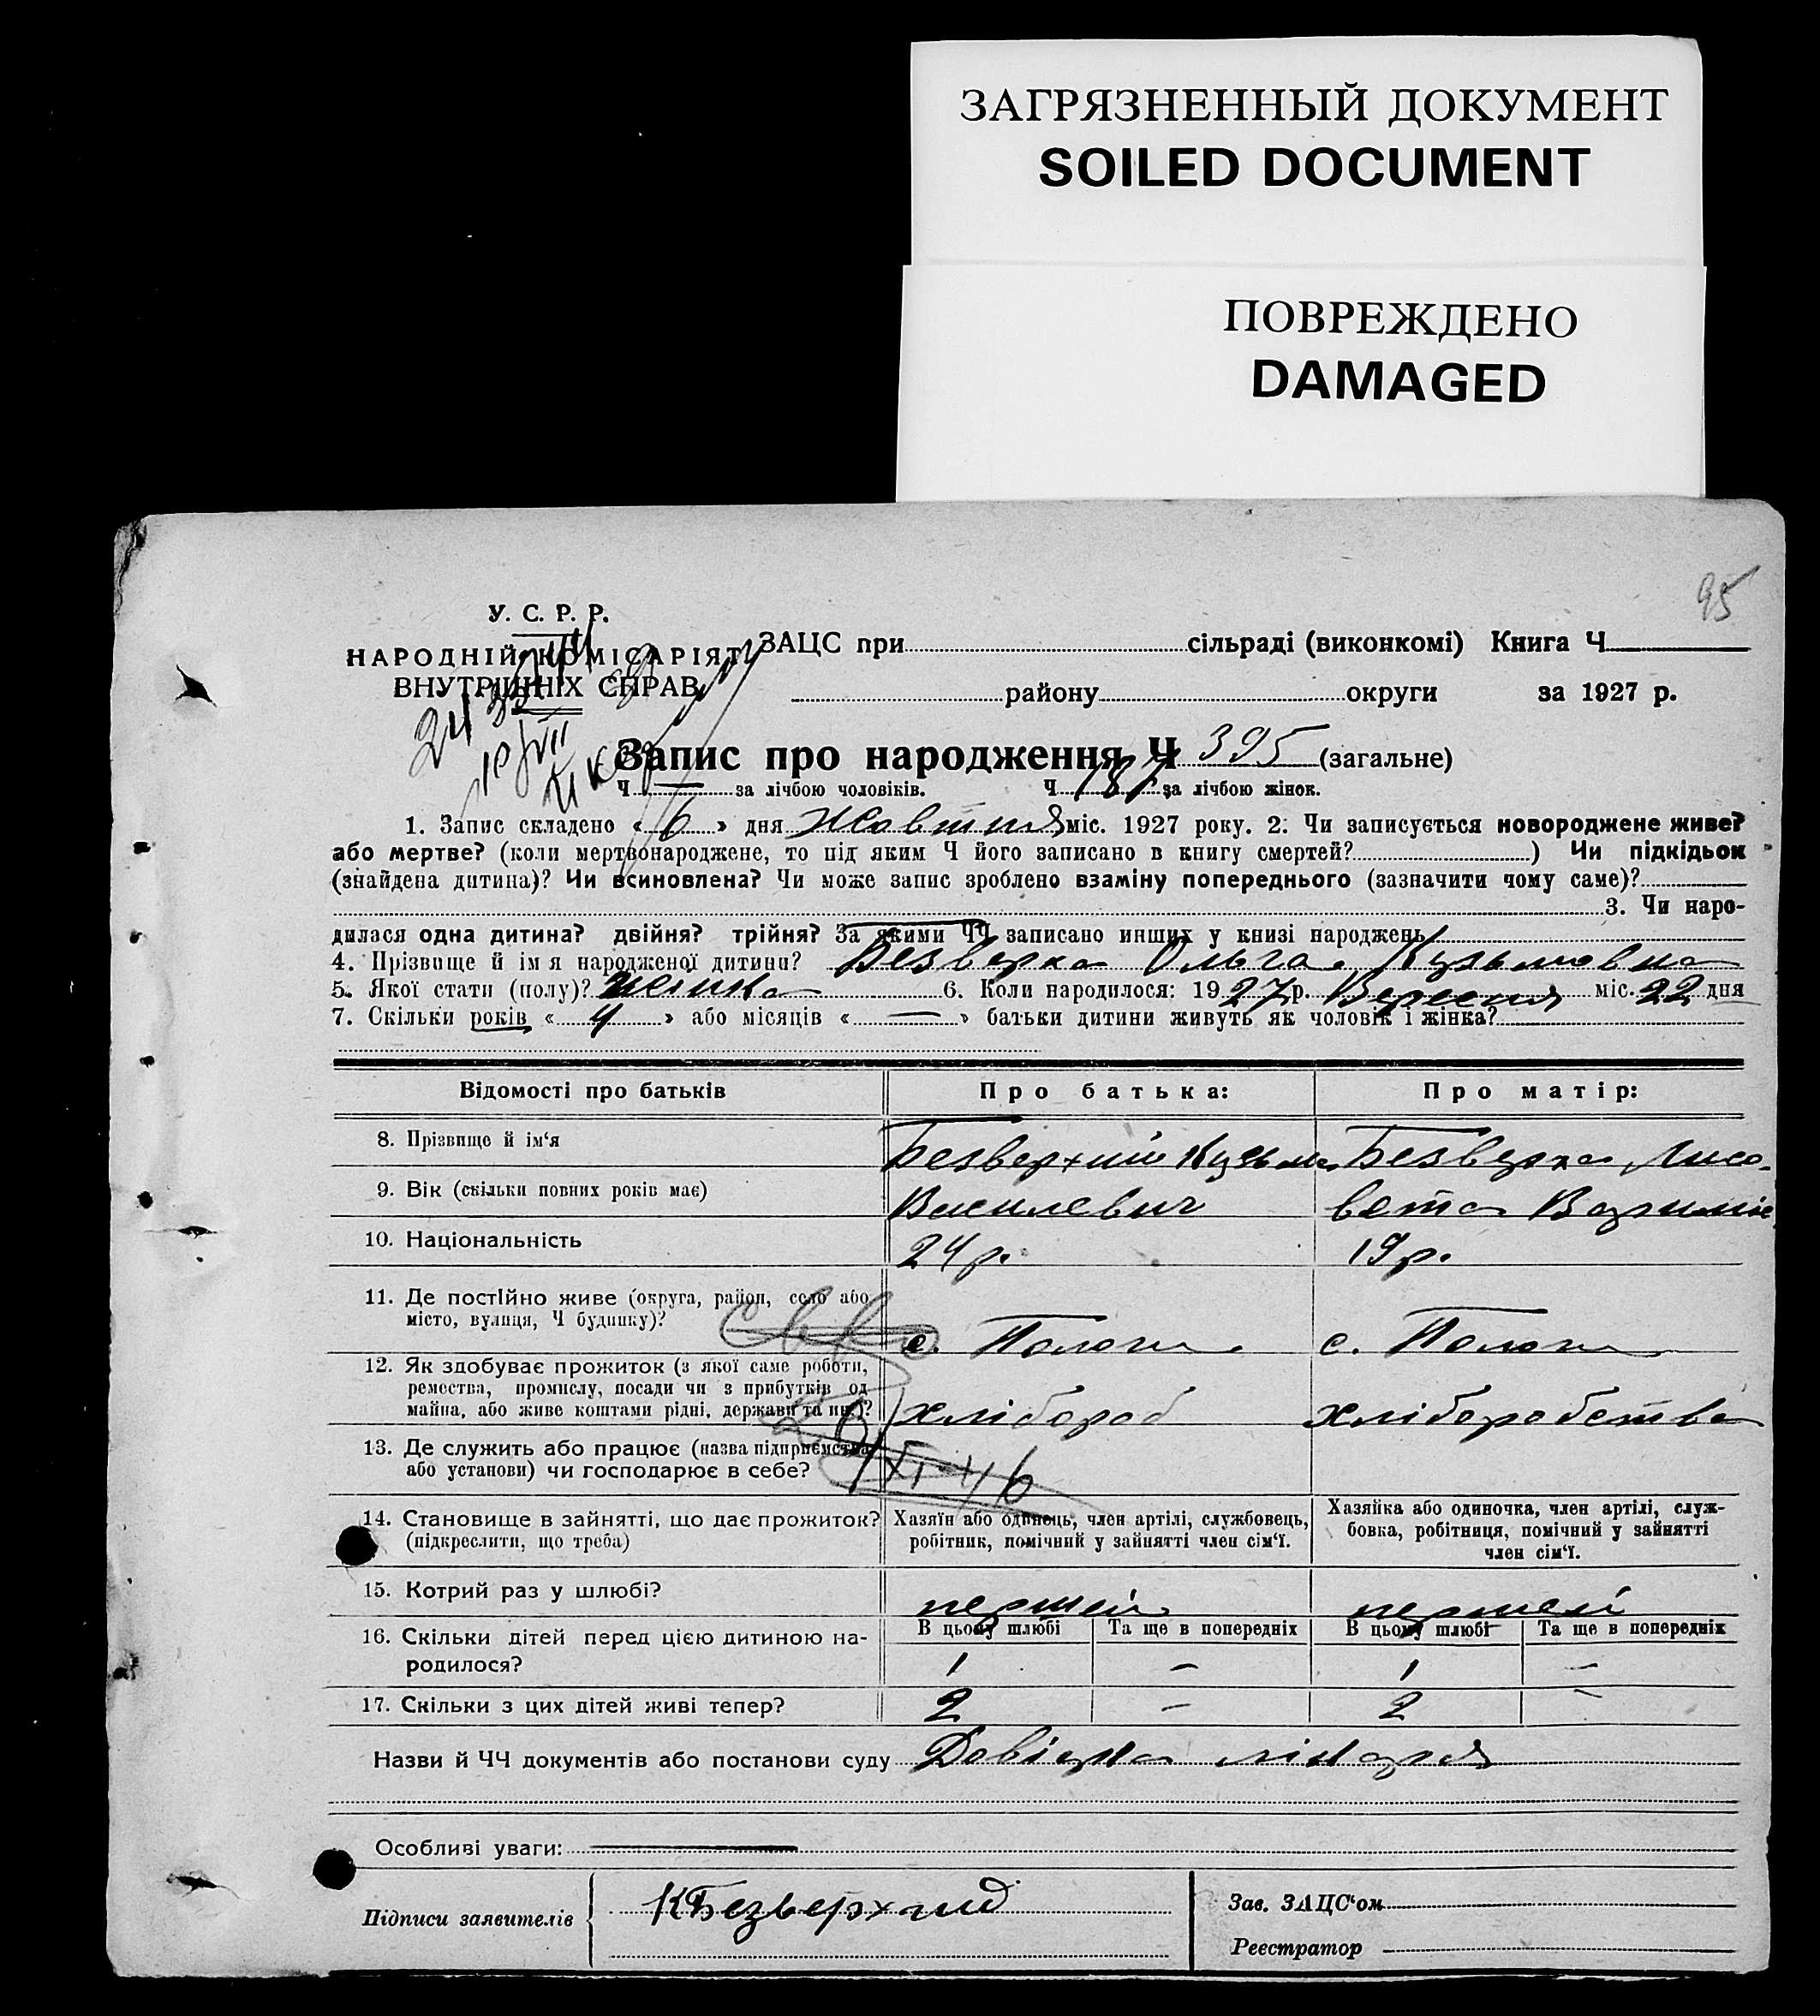 ЗАГРЯЗНЕННЫЙ ДОКУМЕНТ
SOILED DOCUMENT
ПОВРЕЖДЕНО
DAMAGED
95
У. С. Р. Р.
НАРОДНІЙ КОМІСАРІЯТ
ВНУТРІШНІХ СПРАВ
ЗАЦС при сільраді (виконкомі) Книга Ч
району округи за 1927 р.
Запис про народження Ч 395 (загальне)
Ч — за лічбою чоловіків. Ч 187 за лічбою жінок.
1. Запис складено « 6 » дня Жовтня міс. 1927 року. 2. Чи записується новороджене живе?
або мертве? (коли мертвонароджене, то під яким Ч його записано в книгу смертей? ) Чи підкідьок
(знайдена дитина)? Чи всиновлена? Чи може запис зроблено взаміну попереднього (зазначити чому саме)?
3. Чи наро-
дилася одна дитина? двійня? трійня? За якими ЧЧ записано инших у книзі народжень
4. Прізвище й ім я народженої дитини? Безверха Ольга Кузьмовна
5. Якої стати (полу)? жінка 6. Коли народилося: 1927 р. Вересня міс. 22 дня
7. Скільки років « 4 » або місяців « — » батьки дитини живуть як чоловік і жінка?
Відомості про батьків Про батька: Про матір:
8. Прізвище й ім‘я Безверхий Кузьма Безверха Лисо-
9. Вік (скільки повних років має) Василевич вета
10. Національність 24 р. 19 р.
11. Де постійно живе (округа, район, село або
місто, вулиця, Ч будинку)? с. Пологи с. Пологи
12. Як здобуває прожиток (з якої саме роботи,
ремества, промислу, посади чи з прибутків од
майна, або живе коштами рідні, держави та ин.)? хлібороб хліборобства
13. Де служить або працює (назва підприємства
або установи) чи господарює в себе?
14. Становище в зайнятті, що дає прожиток?
(підкреслити, що треба)
Хазяїн або одинець, член артілі, службовець,
робітник, помічний у зайнятті член сім‘ї.
Хазяйка або одиночка, член артілі, служ-
бовка, робітниця, помічний у зайнятті
член сім‘ї.
15. Котрий раз у шлюбі? першей першей
16. Скільки дітей перед цією дитиною на-
родилося?
В цьому шлюбі Та ще в попередніх В цьому шлюбі Та ще в попередніх
1 — 1 —
17. Скільки з цих дітей живі тепер? 2 — 2 —
Назви й ЧЧ документів або постанови суду Довідка лікаря
Особливі уваги: —
Підписи заявителів КБезверхий
Зав. ЗАЦС‘ом
Реєстратор